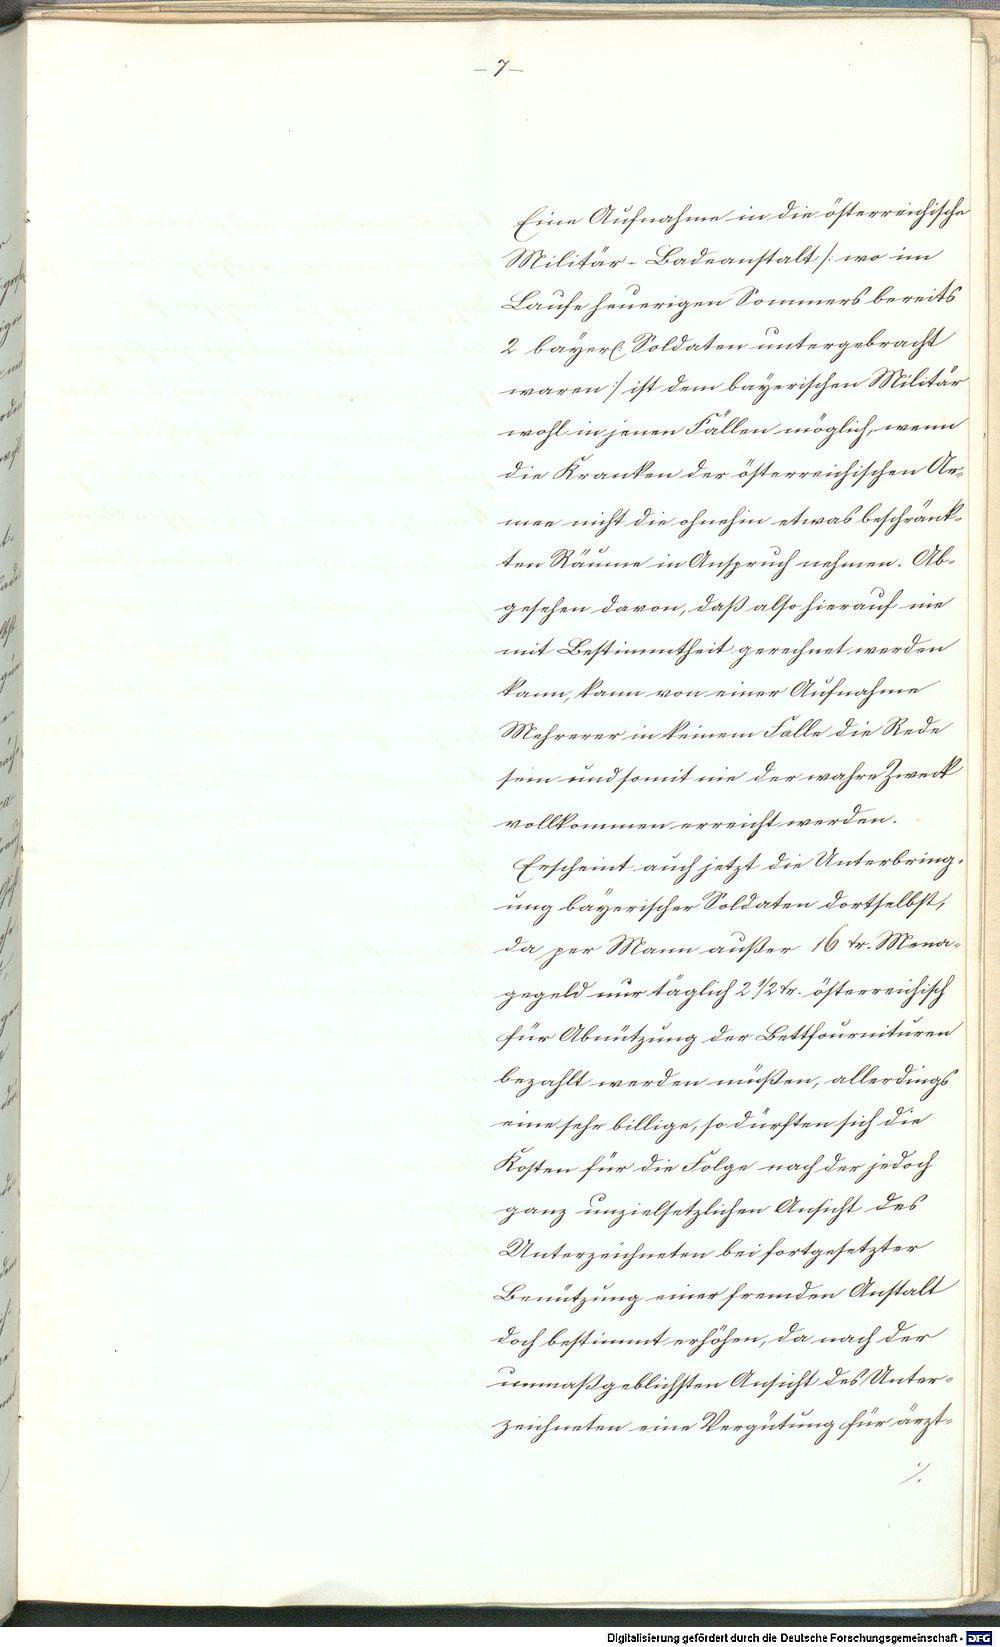 – 7 –
Eine Aufnahme in die österreichische
Militär-Badeanstalt /: wo im
Laufe heuerigen Sommers bereits
2 bayer. Soldaten untergebracht
waren :/ ist dem bayerischen Militär
wohl in jenen Fällen möglich, wenn
die Kranken der österreichischen Ar-
mee nicht die ohnehin etwas beschränk-
ten Räume in Anspruch nehmen. Ab-
gesehen davon, daß also hierauf nie
mit Bestimmtheit gerechnet werden
kann, kann von einer Aufnahme
Mehrerer in keinem Falle die Rede
sein und somit nie der wahre Zweck
vollkommen erreicht werden.
Erscheint auch jetzt die Unterbring-
ung bayerischer Soldaten dortselbst,
da per Mann außer 16 kr. Mena-
gegeld nur täglich 2 1/2 kr. österreichisch
für Abnützung der Bettfournituren
bezahlt werden müßen, allerdings
eine sehr billige, so dürften sich die
Kosten für die Folge nach der jedoch
ganz unzielsetzlichen Ansicht des
Unterzeichneten bei fortgesetzter
Benützung einer fremden Anstalt
doch bestimmt erhöhen, da nach der
unmaßgeblichsten Ansicht des Unter-
zeichneten eine Vergütung für ärzt-
./.
Digitalisierung gefördert durch die Deutsche Forschungsgemeinschaft - DFG